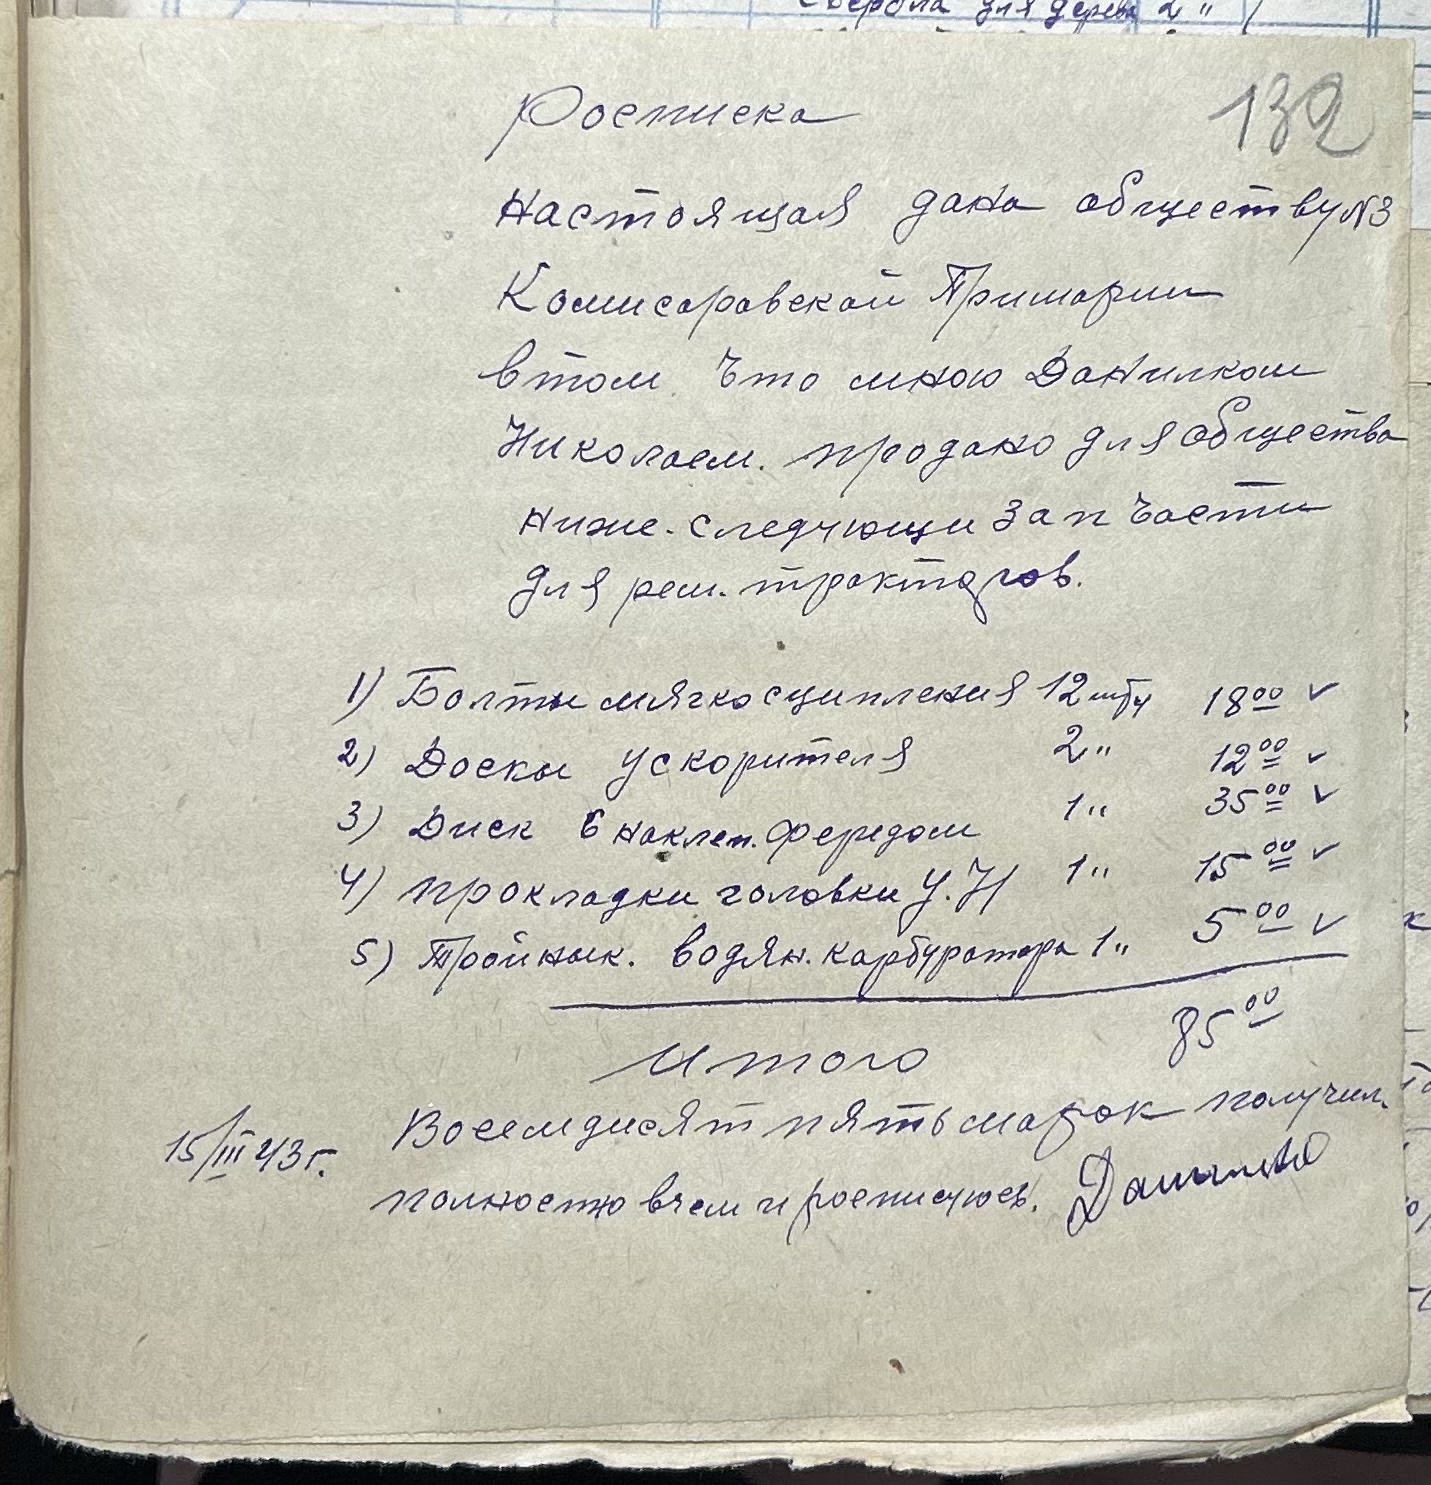 сверла для дерева 2 "
132
Росписка
Настоящая дана обществу №3
Комисаровской Примарии
втом что мною Данилком
Николаем. продано для общества
ниже-следующи зап части
для рем. тракторов.
1) Болты мягкосципления 12 штук 18 00 ✓
2) Доски ускорителя 2 " 12 00 ✓
3) Диск с наклеп. феридом 1 " 35 00 ✓
4) прокладки головки У.Н 1 " 15 00 ✓
5) Тройник. водян. карбуратора 1 " 5 00 ✓
Итого 85 00
Восемдисят пять марок получил
15/III 43 г.
полностю вчем и росписуюсь.